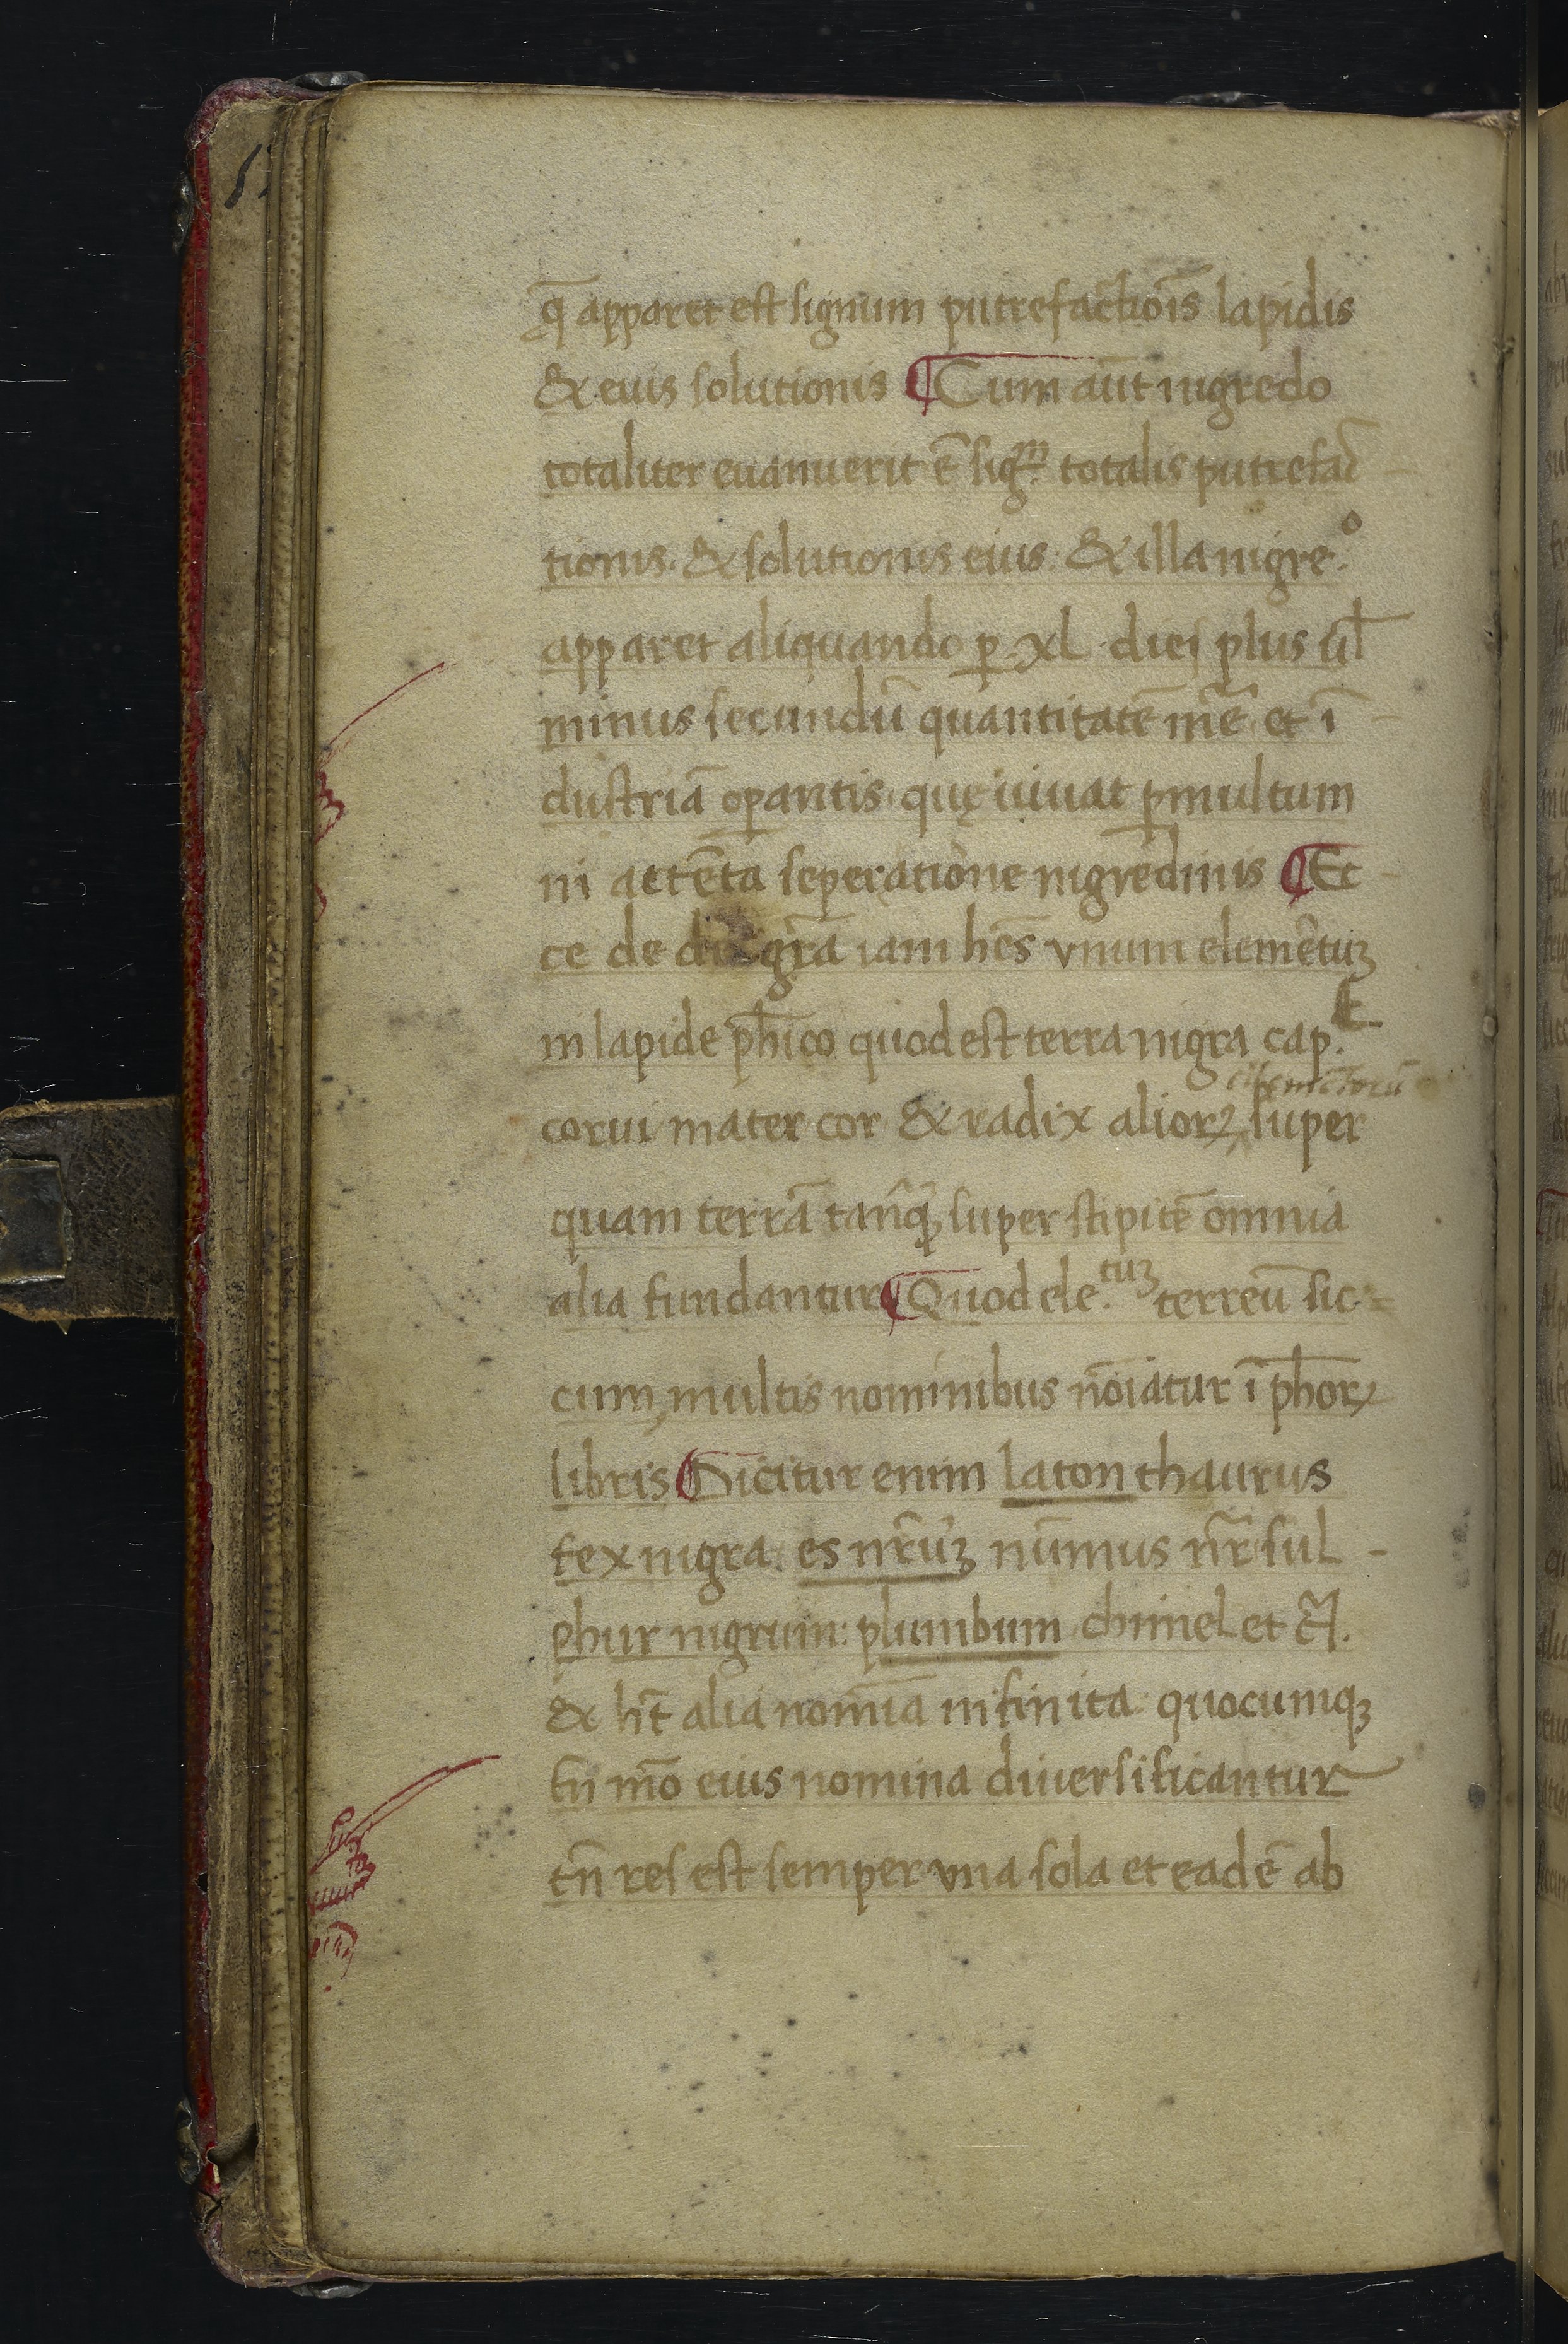 q̄ apparet est signum putrefactiōis lapidis
& eius solutionis ¶ Cum aūt nigredo
totaliter euanuerit ē sigᵐ totalis putrefac̄-
tionis. & solutionis eius. & illa nigre.º
apparet aliquando ꝑ xl dies plus ūl
minus secundū quantitatē mr̄ē et ī-
dustriā oꝑantis. quę iuuat ꝑmultum
in attēta seperatiōne nigrēdinis ¶ Ec-
ce de dei gr̄a iam hēs vnum elemētuꝫ
in lapide ph̄ico quod est terra nigra cap.ᵗ
elemētorū
corui mater cor & radix alioꝝ ‸ super
quam terrā tanq̄ super stipitē omnia
alia fundantur ¶ Quod ele.ᵗᵘᵐ terreū sic=
cum, multis nominibus nōiatur ī ph̄oꝝ
libris ¶ Dicitur enim laton thaurus
fex nigra. es nr̄ūꝫ nūmus nr̄ sul-
phur nigrum: plumbum chimel et c̄.
& hn̄t alia nomīa infinita. quocumqꝫ
tn̄ mō eius nomina diuersificantur
tn̄ res est semper vna sola et eadē ab